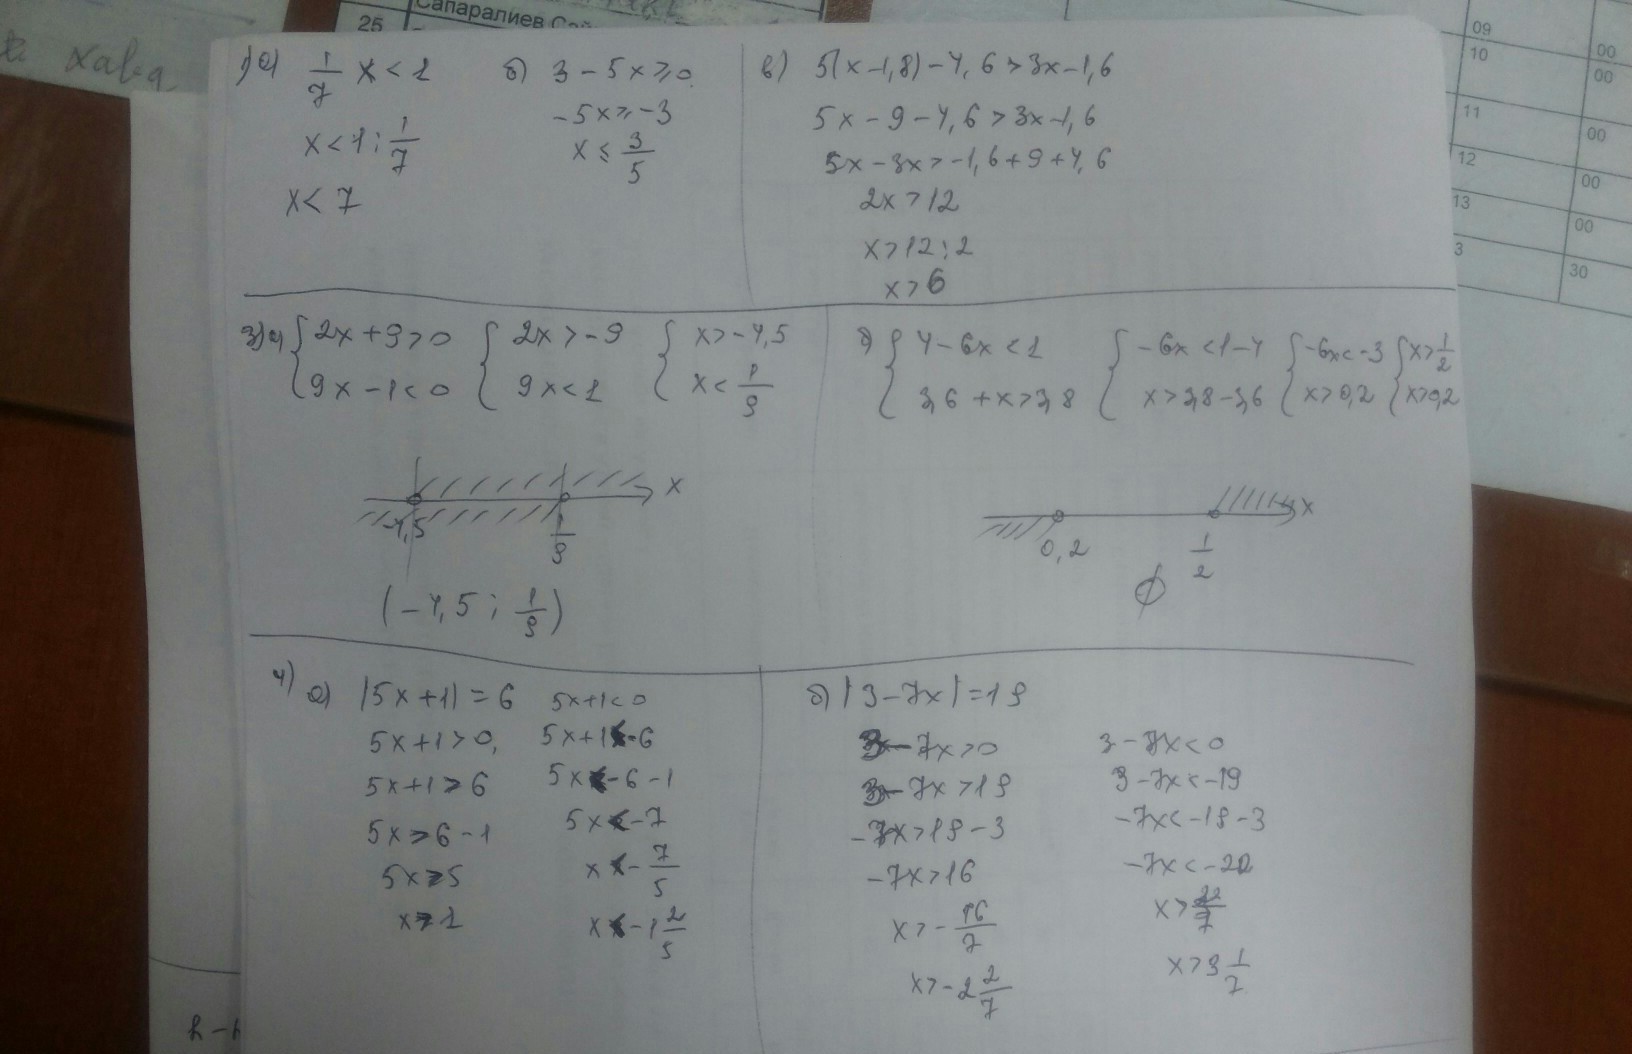 25
Сапаралиев Сай
хавд
09
10
00
00
11
00
12
00
13
00
3
30
1) а) 1/7 x < 1
x < 1 : 1/7
x < 7
б) 3 - 5x ≥ 0
-5x ≥ -3
x ≤ 3/5
в) 5(x - 1,8) - 4,6 > 3x - 1,6
5x - 9 - 4,6 > 3x - 1,6
5x - 3x > -1,6 + 9 + 4,6
2x > 12
x > 12 : 2
x > 6
3) а) { 2x + 9 > 0 { 2x > -9 { x > -4,5
9x - 1 < 0 9x < 1 x < 1/9
-4,5 1/9 x
(-4,5 ; 1/9)
б) { 4 - 6x < 1 { -6x < 1 - 4 { -6x < -3 { x > 1/2
3,6 + x > 3,8 x > 3,8 - 3,6 x > 0,2 x > 0,2
0,2 1/2 x
∅
4) а) |5x + 1| = 6
5x + 1 > 0,
5x + 1 = 6
5x = 6 - 1
5x = 5
x = 1
5x + 1 < 0
5x + 1 = -6
5x = -6 - 1
5x = -7
x = -7/5
x = -1 2/5
б) |3 - 7x| = 19
3 - 7x > 0
3 - 7x > 19
-7x > 19 - 3
-7x > 16
x > -16/7
x > -2 2/7
3 - 7x < 0
3 - 7x < -19
-7x < -19 - 3
-7x < -22
x > 22/7
x > 3 1/7